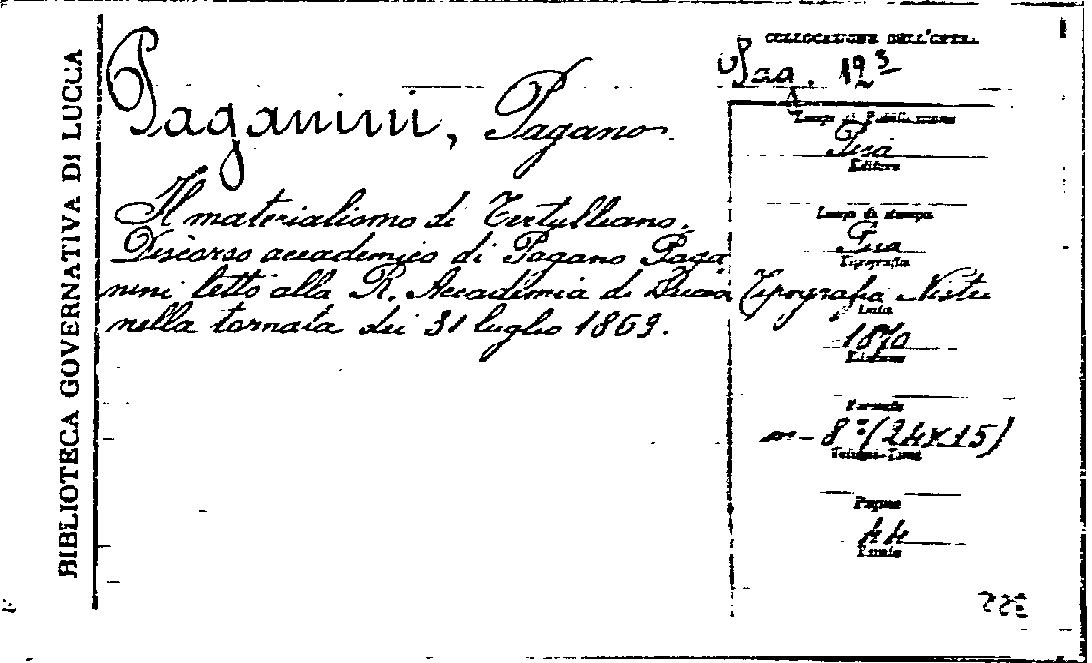 BIBLIOTECA GOVERNATIVA DI LUCCA
Paganini, Pagano.
Il materialismo di Tertulliano.
Discorso accademico di Pagano Paga
nini letto alla R. Accademia di Lucca
nella tornata dei 31 luglio 1869.
COLLOCAZIONE DELL'OPERA
12³
Luogo di Pubblicazione
Pisa
Editore
Luogo di stampa
Pisa
Tipografia
Tipografia Nistri
1870
Edizione
Formato
in-8° (24x15)
Pagine
44